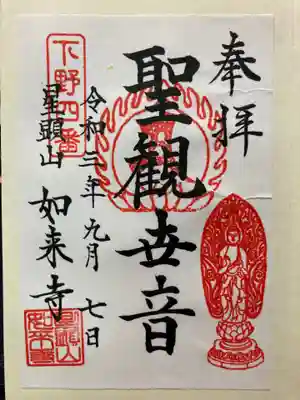 奉拝
聖観世音
令和三年九月七日
下野四番
星顕山 如来寺